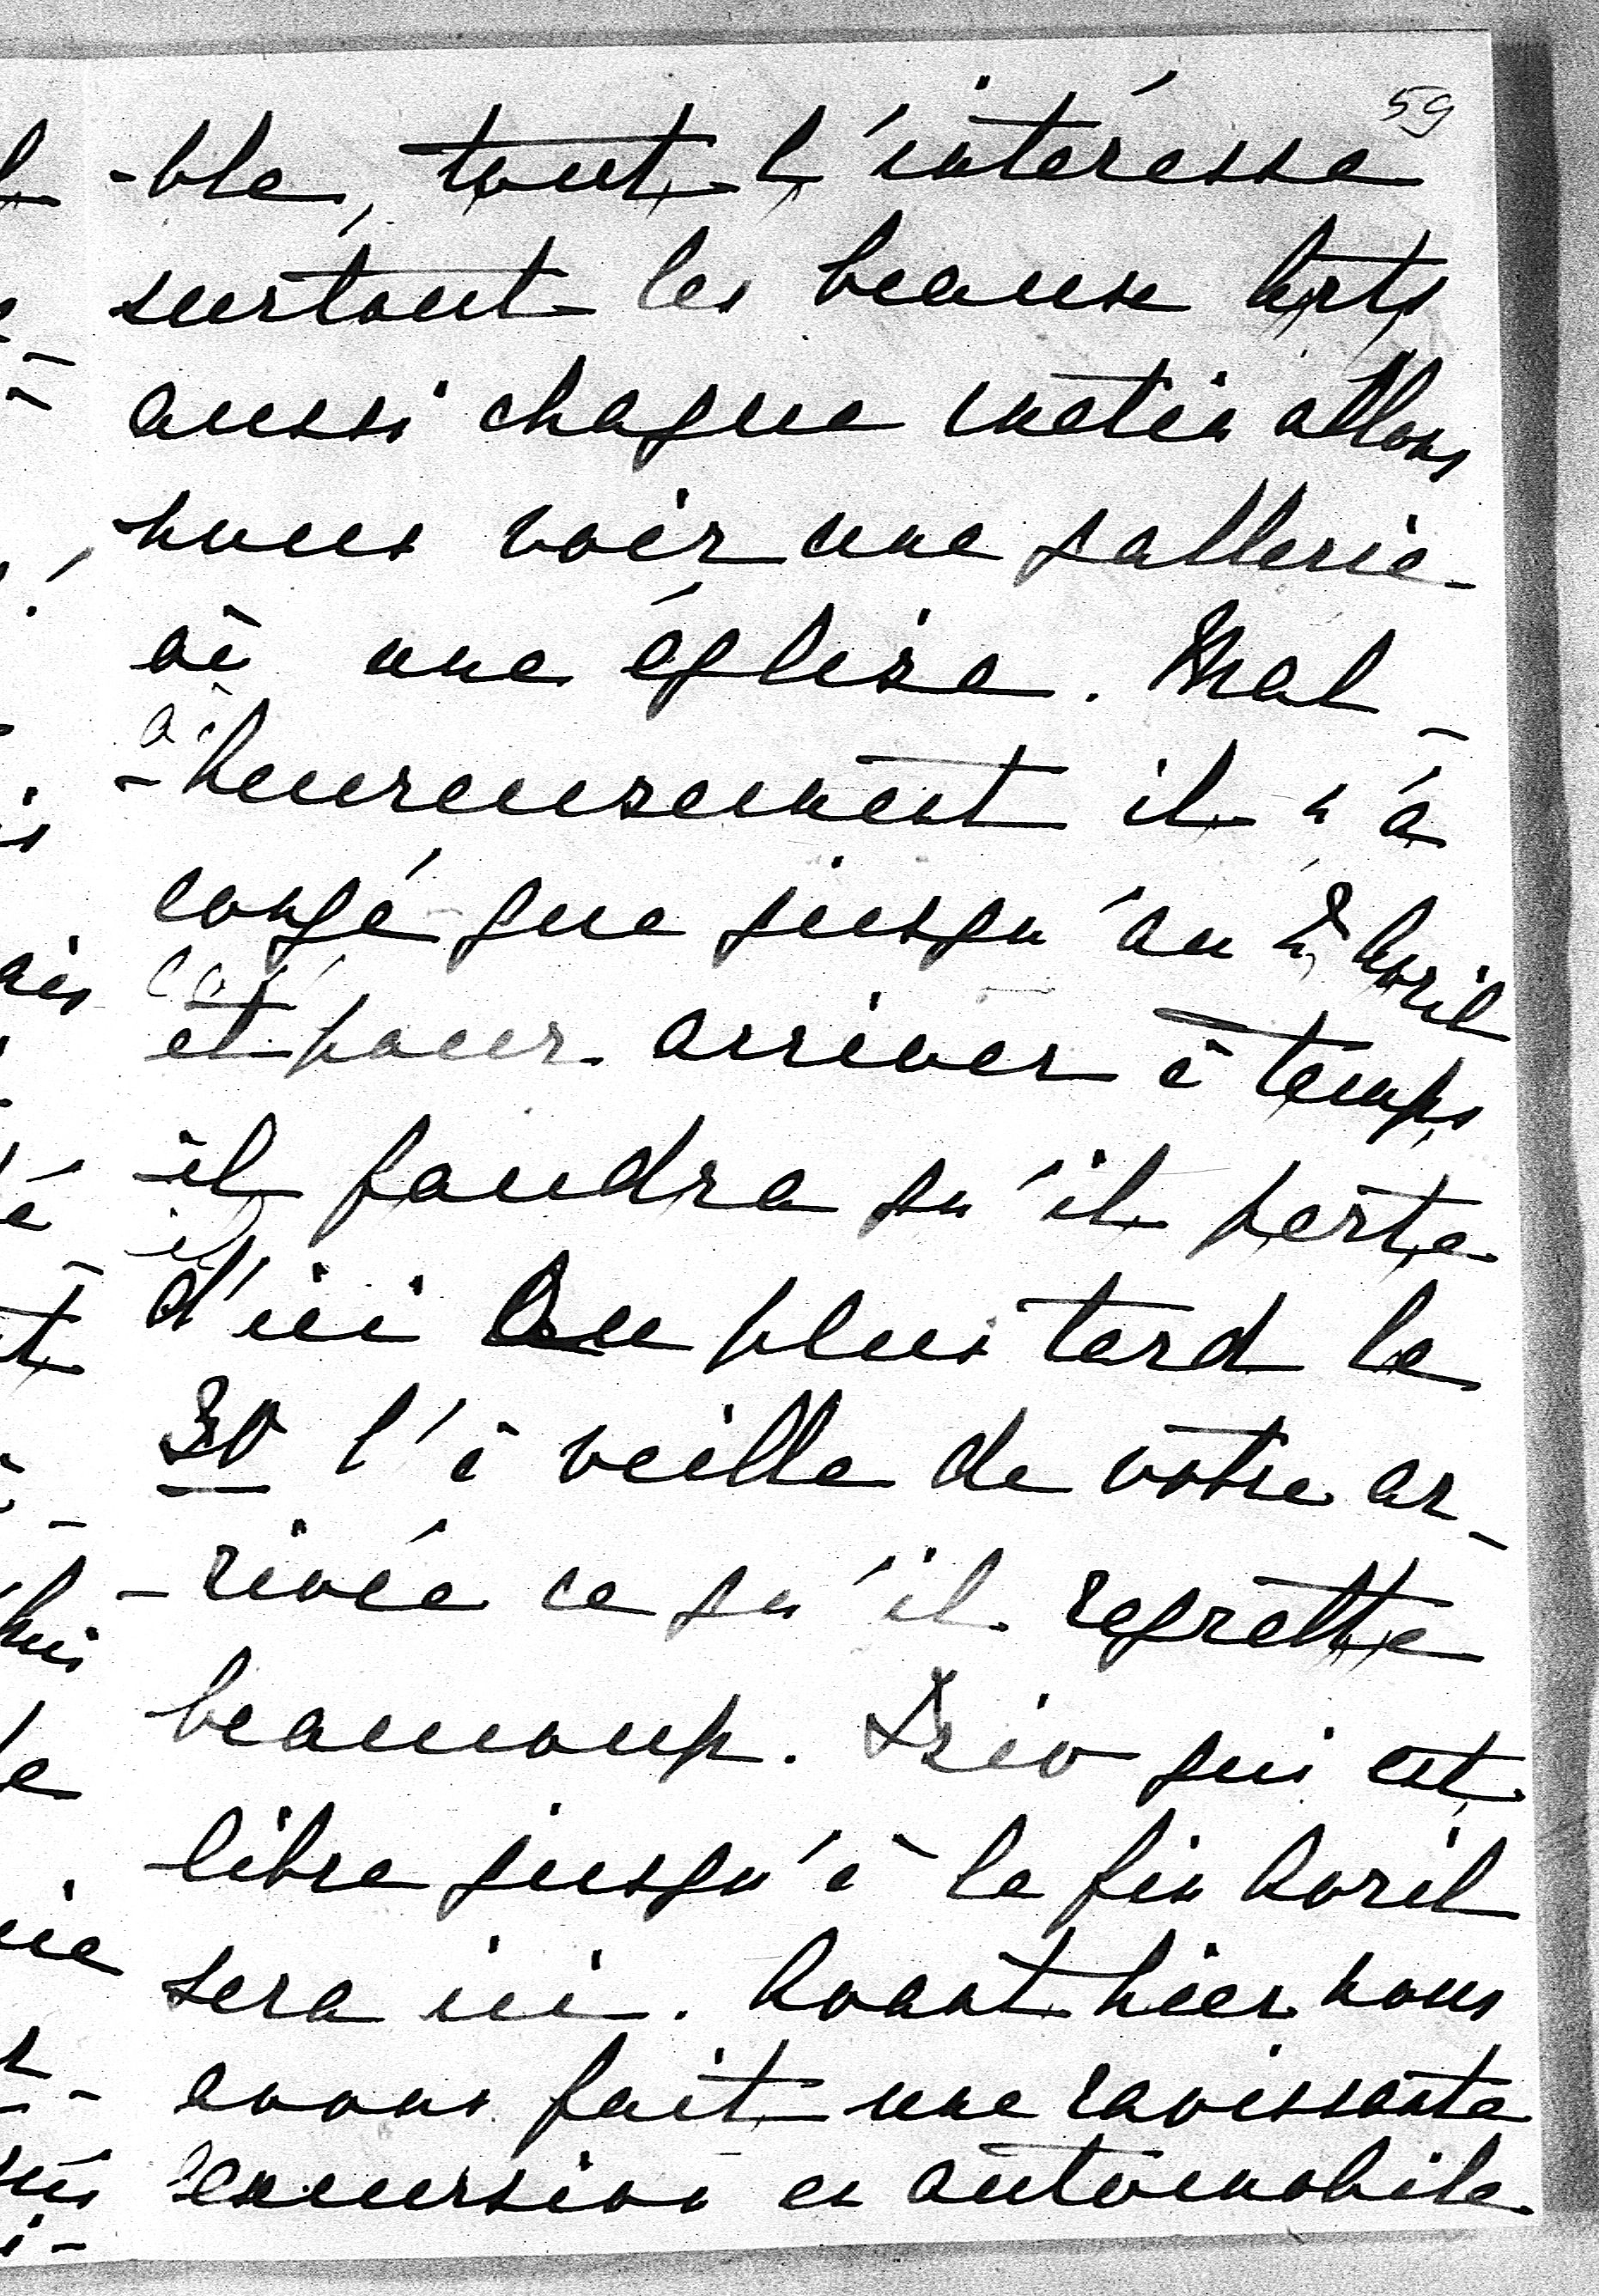 59
-ble, tout l'intéresse
surtout les beaux Arts
aussi chaque matin allons
nous voir une gallerie
où une église. Mal-
-heureusement il n'a
congé que jusqu'au 2 Avril
et pour arriver à temps
il faudra qu'il parte
d'ici au plus tard le
30 l'à veille de votre ar-
-rivée ce qu'il regrette
beaucoup. qui est
libre jusqu'à la fin Avril
sera ici. Avant hier nous
avons fait une ravissante
excursion en automobile